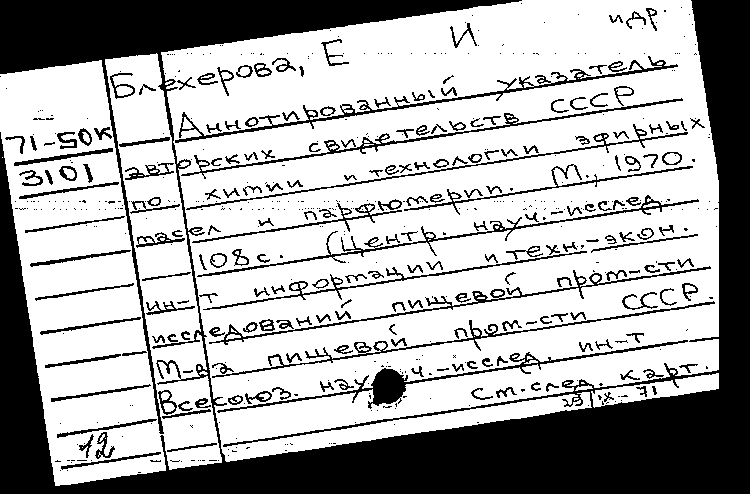 Блехерова, Е И и др.
71-50К
3101
Аннотированный указатель
авторских свидетельств СССР
по химии и технологии эфирных
масел и парфюмерии. М., 1970.
108 с. (Центр. науч.-исслед.
ин-т информации и техн.-экон.
исследований пищевой пром-сти
М-ва пищевой пром-сти СССР.
Всесоюз. науч.-исслед. ин-т
См. след. карт.
29/IX-71
12